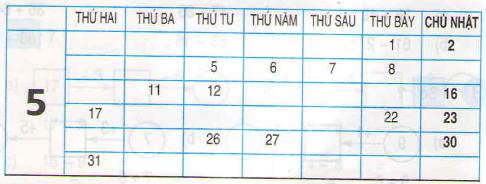 THỨ HAI THỨ BA THỨ TƯ THỨ NĂM THỨ SÁU THỨ BẢY CHỦ NHẬT
1 2
5 6 7 8
5
11 12 16
17 22 23
26 27 30
31